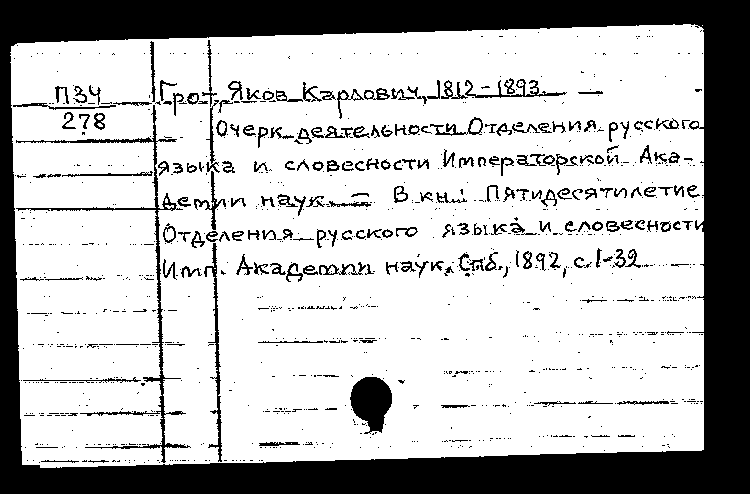 ПЗЧ
278
Грот, Яков Карлович, 1812-1893.
Очерк деятельности Отделения русского
языка и словесности Императорской Ака-
демии наук. — В кн.: Пятидесятилетие
Отделения русского языка и словесности
Имп. Академии наук. Спб., 1892, с. 1-39